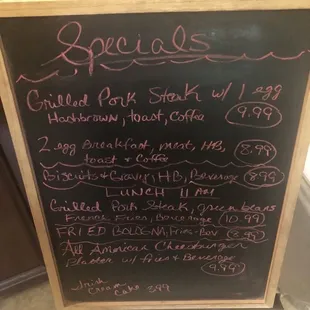 Specials
Grilled Pork Steak w/ 1 egg
Hashbrown, toast, Coffee 9.99
2 egg Breakfast, meat, HB, 8.99
toast & Coffee
Biscuits & Gravy, HB, Beverage 8.99
LUNCH 11 AM
Grilled Pork Steak, green beans
French Fries, Beverage 10.99
FRIED BOLOGNA, Fries-Bev
All American Cheeseburger
Platter w/ fries & Beverage
9.99
Irish
Cream
Cake 3.99